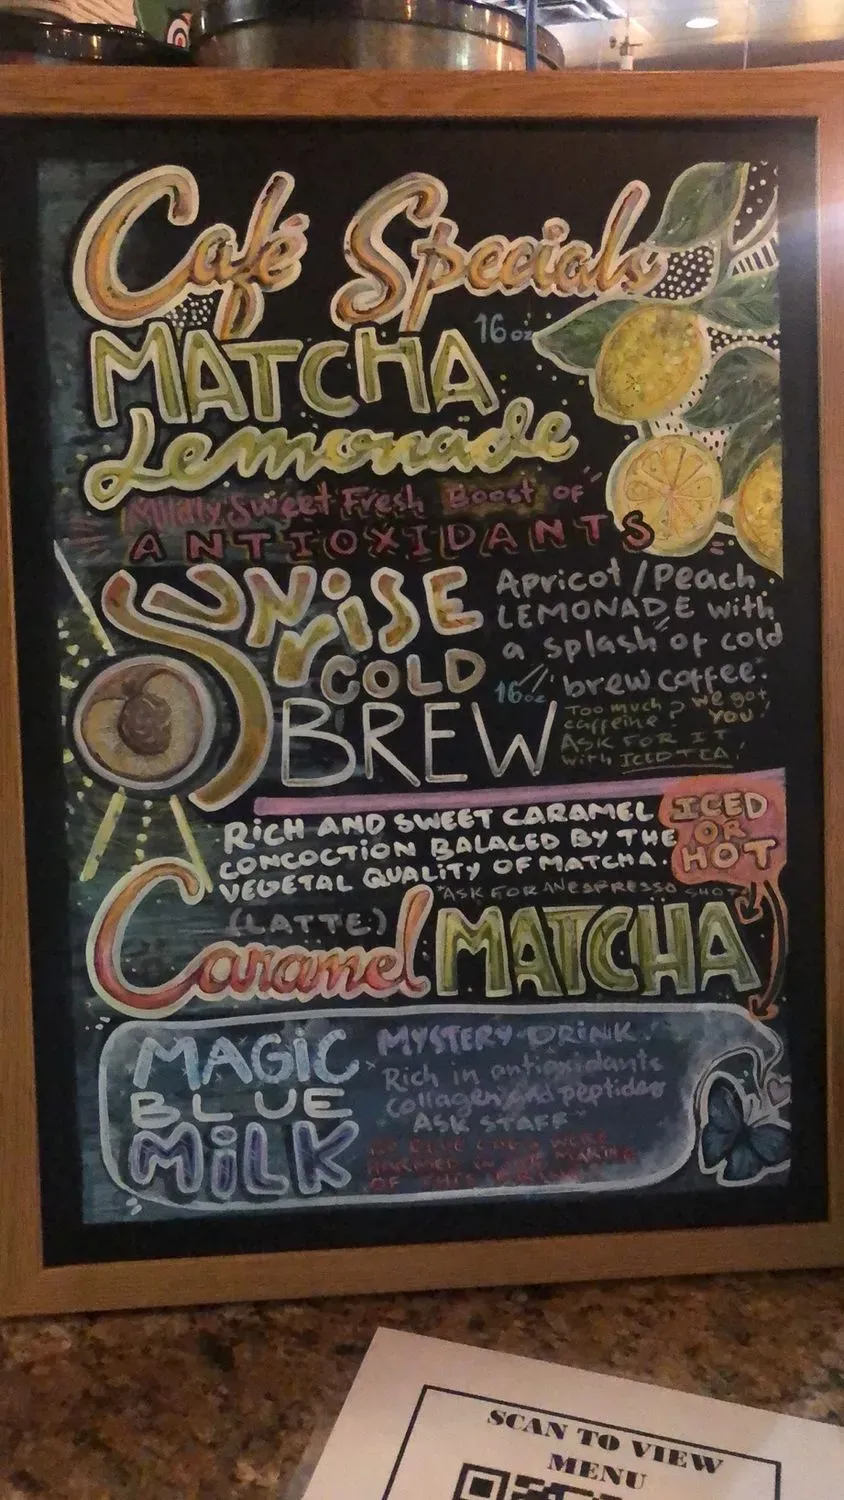 Café Specials
MATCHA 16oz
Lemonade
Mildly Sweet Fresh Boost of
ANTIOXIDANTS
SUNRiSE
COLD
BREW
16oz
Apricot/Peach
LEMONADE with
a "splash" of cold
brew coffee.
Too much caffeine? We got
YOU!
ASK FOR IT
with ICED TEA!
RiCH AND SWEET CARAMEL
CONCOCTION BALACED BY THE
VEGETAL QUALITY OF MATCHA.
*ASK FOR AN ESPRESSO SHOT
ICED
OR
HOT
(LATTE)
Caramel MATCHA
MAGiC
BLUE
MiLK
MYSTERY DRINK
Rich in antioxidants
collagen and peptides
ASK STAFF
NO BLUE COWS WERE
HARMED IN THE MAKING
OF THIS DRINK
SCAN TO VIEW
MENU